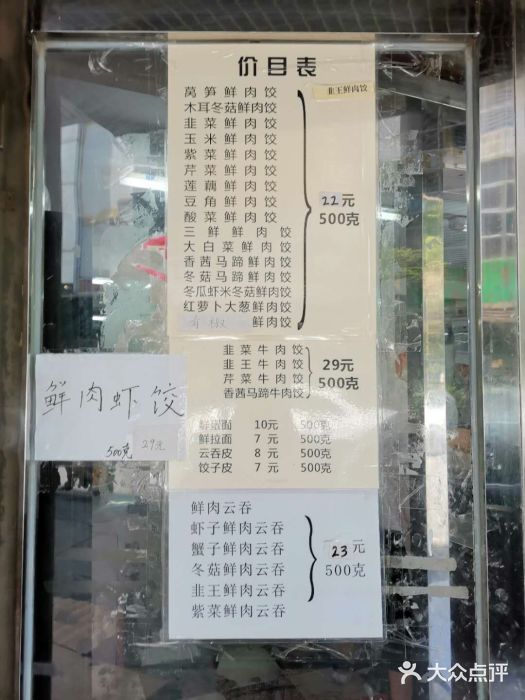 价目表
韭王鲜肉饺
莴笋鲜肉饺
木耳冬菇鲜肉饺
韭菜鲜肉饺
玉米鲜肉饺
紫菜鲜肉饺
芹菜鲜肉饺
莲藕鲜肉饺
豆角鲜肉饺
酸菜鲜肉饺
三鲜鲜肉饺
大白菜鲜肉饺
香茜马蹄鲜肉饺
冬菇马蹄鲜肉饺
冬瓜虾米冬菇鲜肉饺
红萝卜大葱鲜肉饺
青椒 鲜肉饺
22元
500克
韭菜牛肉饺
韭王牛肉饺
芹菜牛肉饺
香茜马蹄牛肉饺
29元
500克
鲜肉虾饺
500克 29元
鲜 面 10元 500克
鲜拉面 7元 500克
云吞皮 8元 500克
饺子皮 7元 500克
鲜肉云吞
虾子鲜肉云吞
蟹子鲜肉云吞
冬菇鲜肉云吞
韭王鲜肉云吞
紫菜鲜肉云吞
23元
500克
大众点评